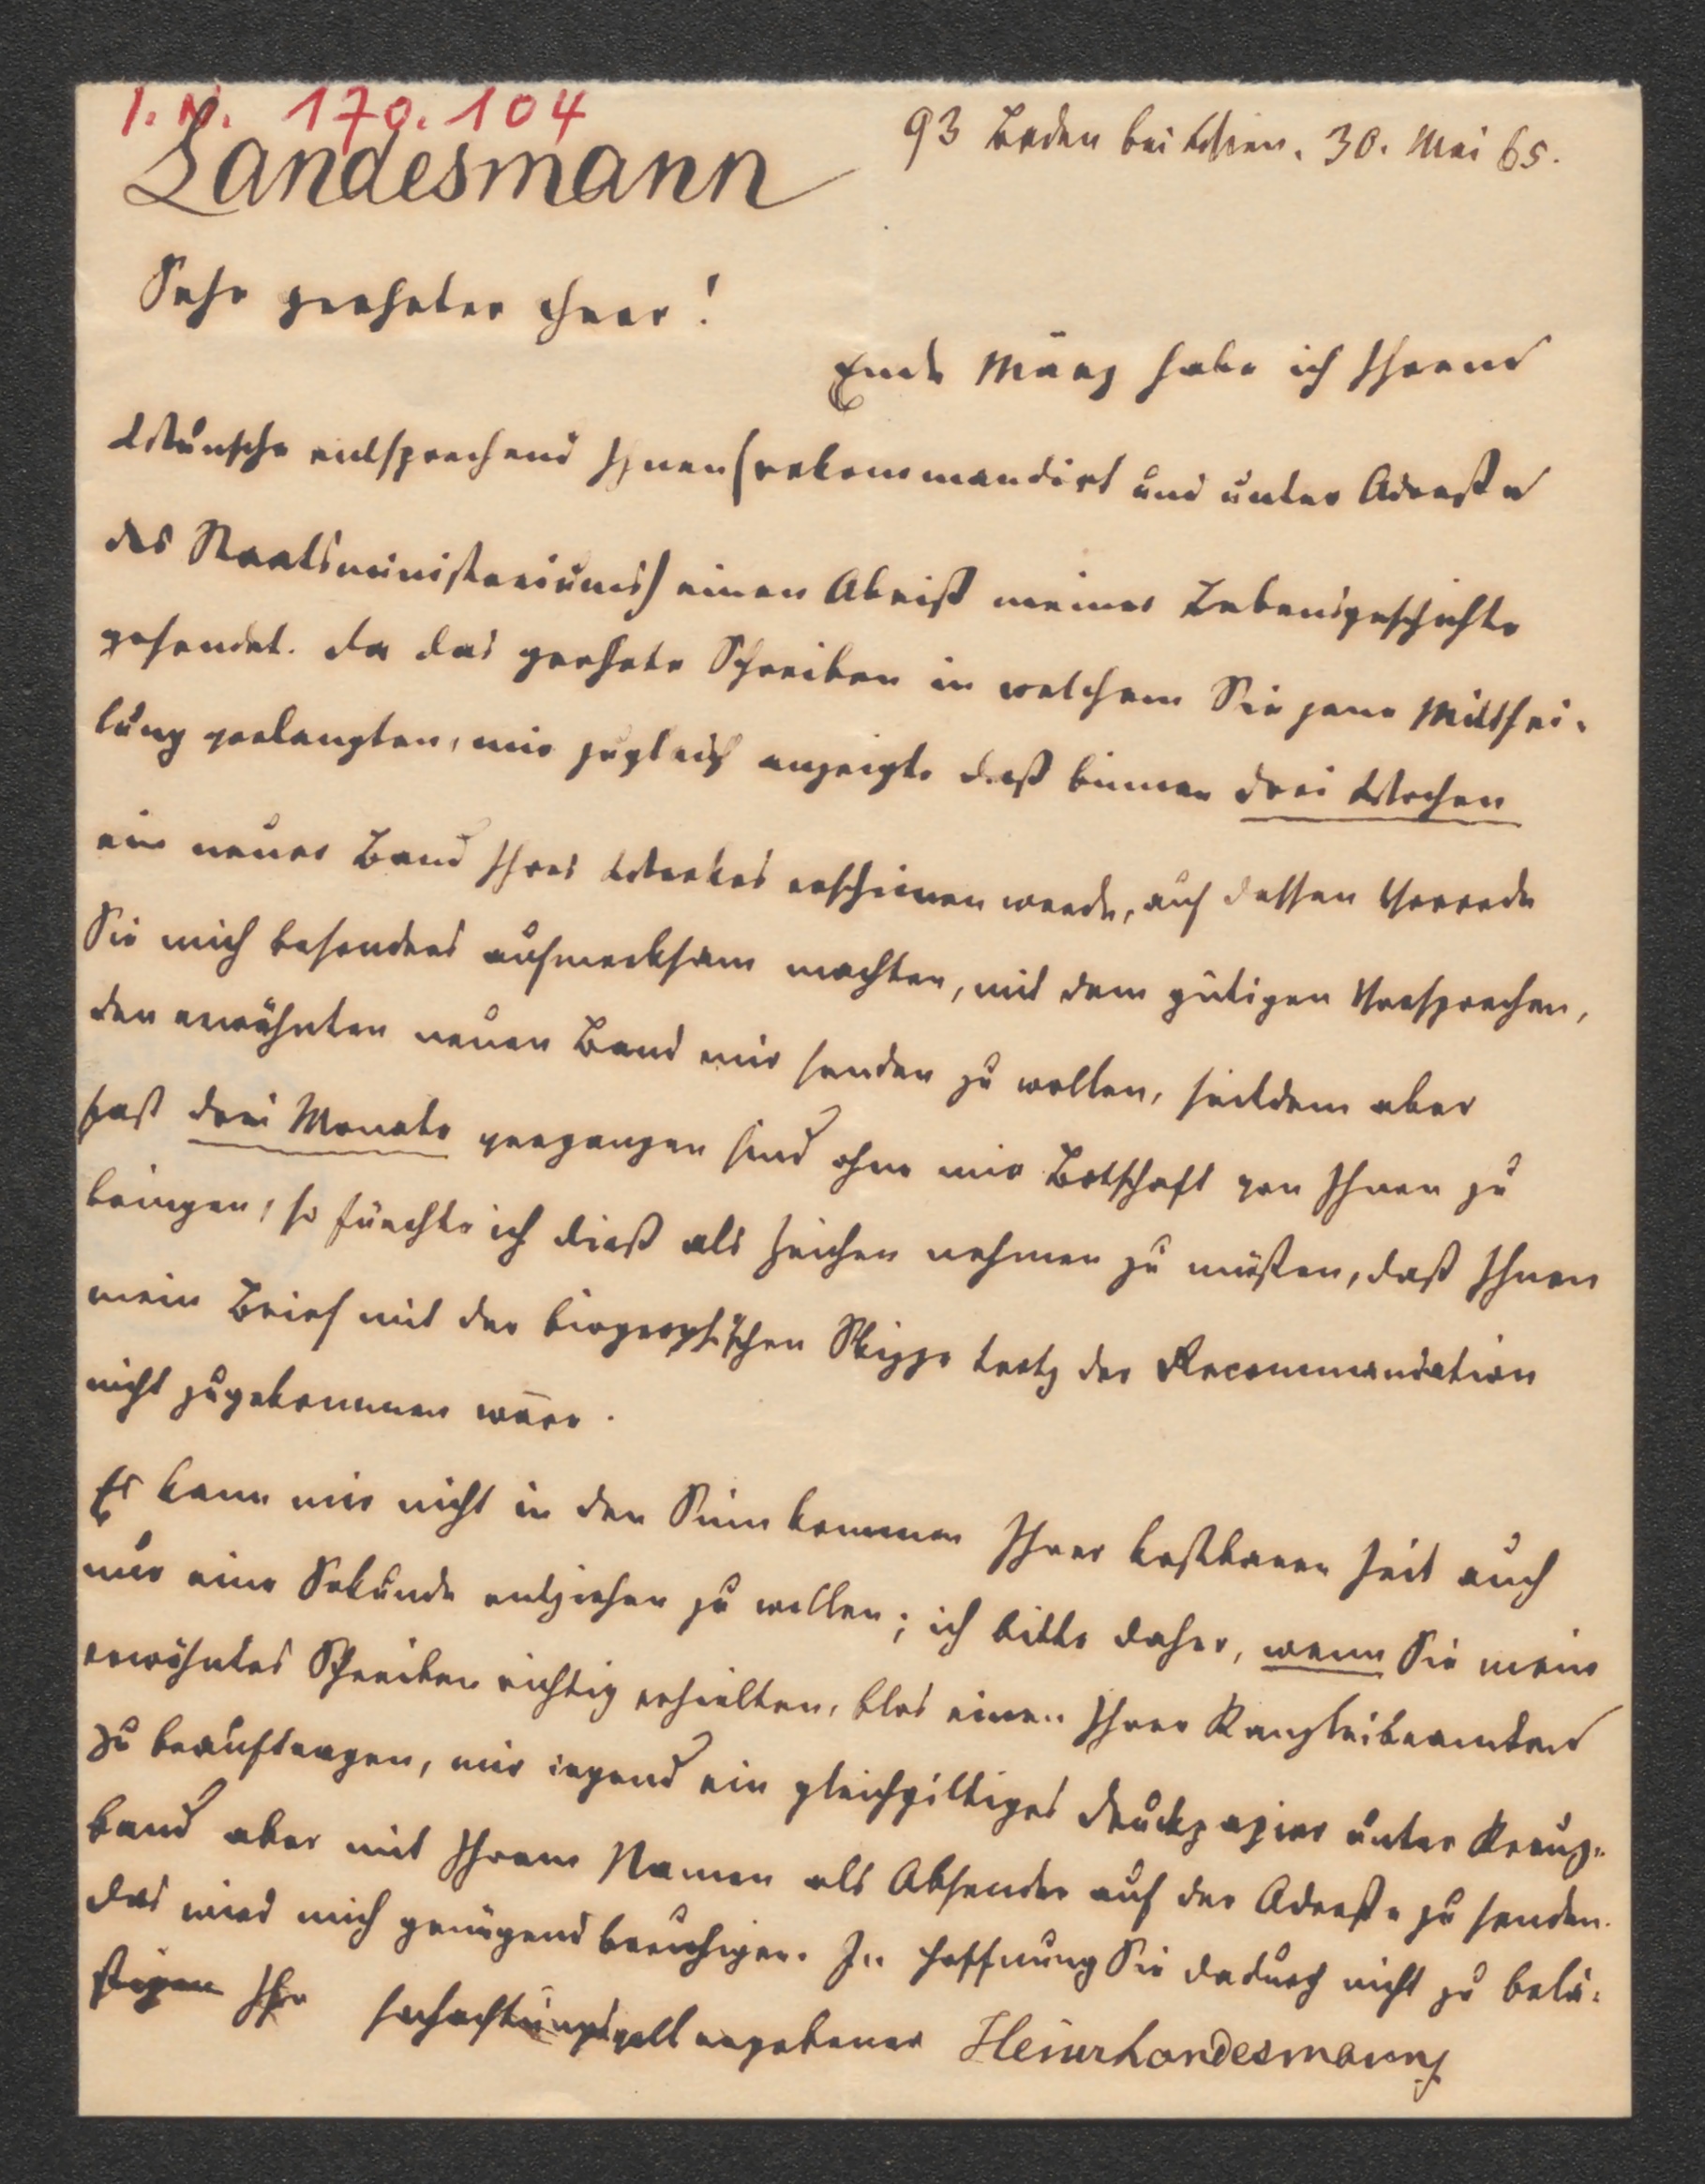 I. N. 170.104
Landesmann
93 Baden bei Wien. 30. Mai 65.
Sehr geehrter Herr!
Ende März habe ich Ihrem
Wunsche entsprechend Ihnen (rekommandirt und unter Adresse
des Staatsministeriums) einen Abriß meiner Lebensgeschichte
gesendet. Da das geehrte Schreiben in welchem Sie jene Mitthei-
lung verlangten, mir zugleich anzeigte daß binnen drei Wochen
ein neuer Band Ihres Werkes erscheinen werde, auf dessen Vorrede
Sie mich besonders aufmerksam machten, mit dem gütigen Versprechen,
den erwähnten neuen Band mir senden zu wollen, seitdem aber
fast drei Monate vergangen sind ohne mir Botschaft von Ihnen zu
bringen, so fürchte ich dieß als Zeichen nehmen zu müßen, daß Ihnen
mein Brief mit der biographischen Skizze trotz der Recommandation
nicht zugekommen wäre.
Es kann mir nicht in den Sinn kommen Ihrer kostbaren Zeit auch
nur eine Sekunde entziehen zu wollen; ich bitte daher, wenn Sie mein
erwähntes Schreiben richtig erhielten, blos einen Ihrer Kanzleibeamten
zu beauftragen, mir irgend ein gleichgiltiges Druckpapier unter Kreuz-
band aber mit Ihrem Namen als Absender auf der Adresse zu senden.
Das wird mich genügend beruhigen. In Hoffnung Sie dadurch nicht zu belä-
stigen Ihr hochachtungsvoll ergebener Heinr Landesmann